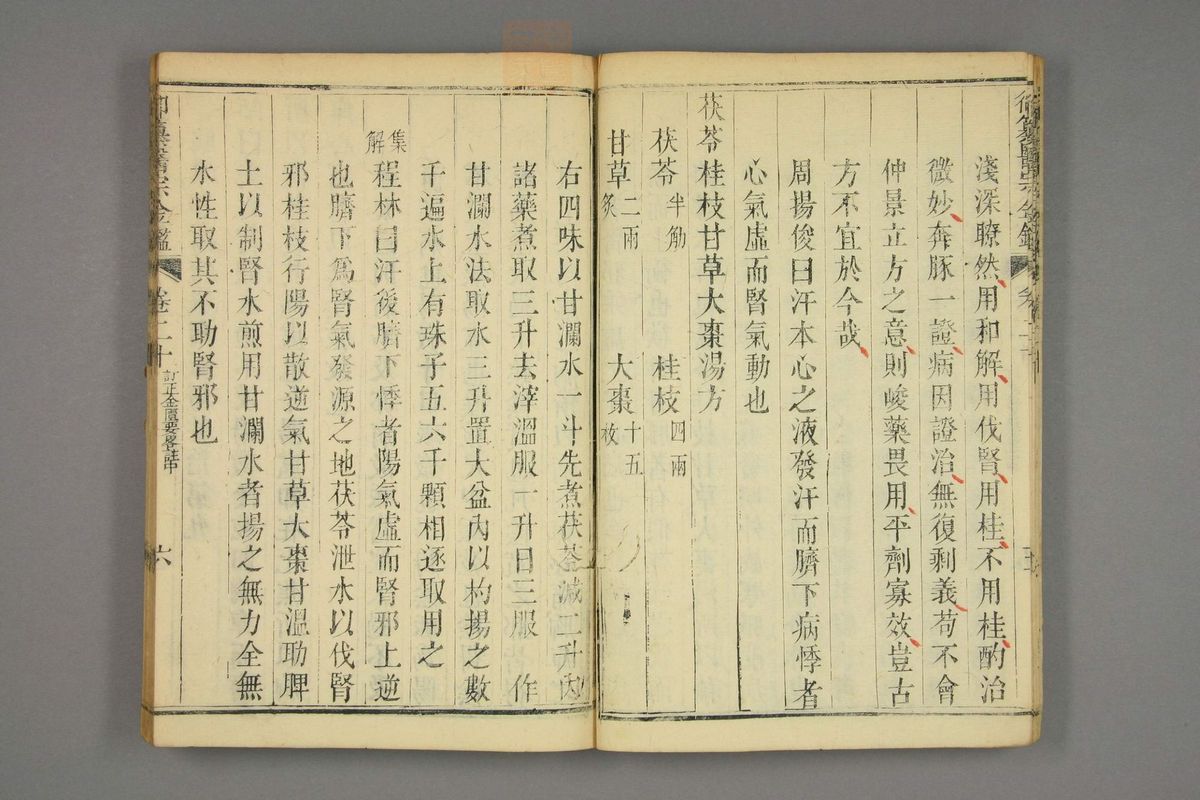 淺深瞭然用和解用伐腎用桂不用桂酌治
微妙奔豚一證病因證治無復剩義苟不會
仲景立方之意則峻藥畏用平劑寡效豈古
方不宜於今哉
周揚俊曰汗本心之液發汗而臍下病悸者
心氣虛而腎氣動也
茯苓桂枝甘草大棗湯方
茯苓半觔 桂枝四兩
甘草二兩炙 大棗十五枚
右四味以甘瀾水一斗先煮茯苓減二升內
諸藥煮取三升去滓溫服一升日三服 作
甘瀾水法取水三升置大盆內以杓揚之數
千遍水上有珠子五六千顆相逐取用之
集解程林曰汗後臍下悸者陽氣虛而腎邪上逆
也臍下爲腎氣發源之地茯苓泄水以伐腎
邪桂枝行陽以散逆氣甘草大棗甘溫助脾
土以制腎水煎用甘瀾水者揚之無力全無
水性取其不助腎邪也
御纂醫宗金鑑 卷二十 訂正金匱要畧註中 六